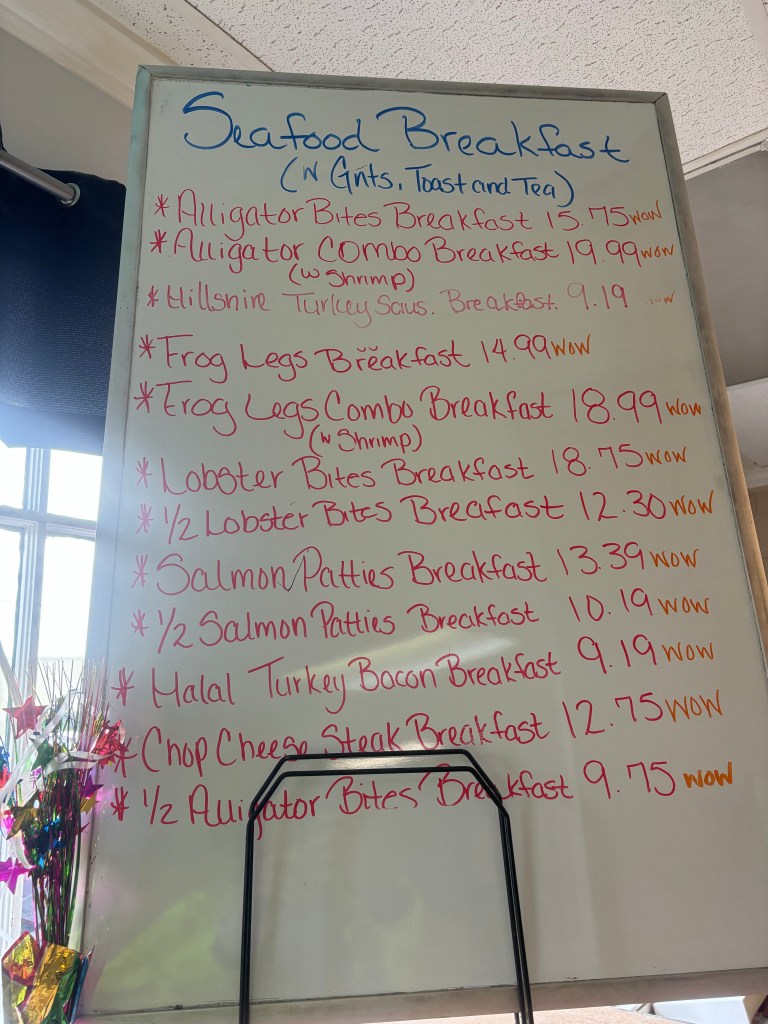 Seafood Breakfast
(W Grits, Toast and Tea)
* Alligator Bites Breakfast 15.75 wow
* Alligator Combo Breakfast 19.99 wow
(W Shrimp)
* Hillshire Turkey Saus. Breakfast. 9.19 wow
* Frog Legs Breakfast 14.99 wow
* Frog Legs Combo Breakfast 18.99 wow
(W Shrimp)
* Lobster Bites Breakfast 18.75 wow
* 1/2 Lobster Bites Breafast 12.30 wow
* Salmon Patties Breakfast 13.39 wow
* 1/2 Salmon Patties Breakfast 10.19 wow
* Halal Turkey Bacon Breakfast 9.19 wow
* Chop Cheese Steak Breakfast 12.75 wow
* 1/2 Alligator Bites Breakfast 9.75 wow